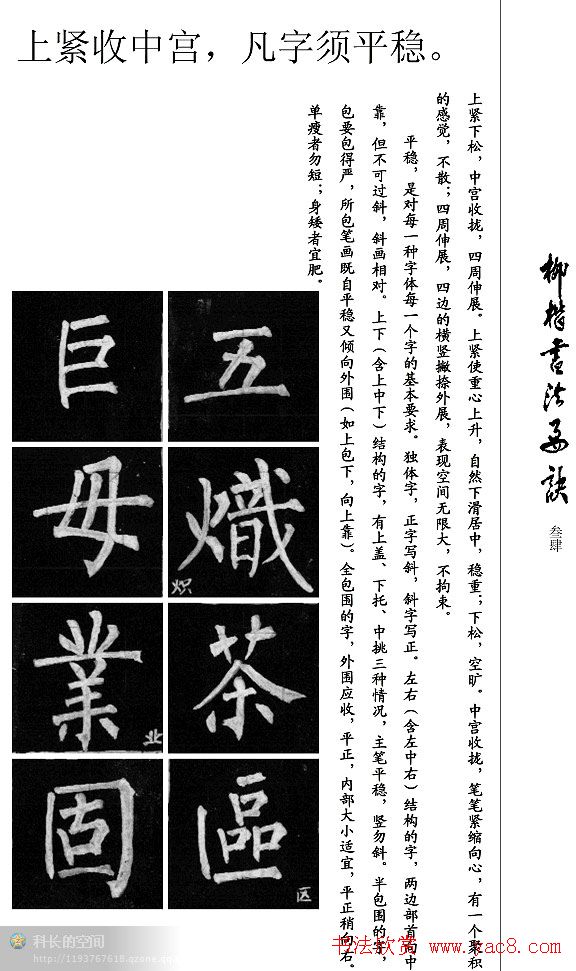 上紧收中宫，凡字须平稳。
柳楷書法要訣
叁肆
上紧下松，中宫收拢，四周伸展。上紧使重心上升，自然下滑居中，稳重；下松，空旷。中宫收拢，笔笔紧缩向心，有一个聚积
的感觉，不散；四周伸展，四边的横竖撇捺外展，表现空间无限大，不拘束。
平稳，是对每一种字体每一个字的基本要求。独体字，正字写斜，斜字写正。左右（含左中右）结构的字，两边部首向中
靠，但不可过斜，斜画相对。上下（含上中下）结构的字，有上盖、下托、中挑三种情况，主笔平稳，竖勿斜。半包围的字，
包要包得严，所包笔画既自平稳又倾向外围（如上包下，向上靠）。全包围的字，外围应收，平正，内部大小适宜，平正稍向右。
单瘦者勿短；身矮者宜肥。
五
熾
炽
茶
區
区
巨
毋
業
业
固
科长的空间
http://1193767618.qzone.qq.com
书法欣赏 www.yac8.com